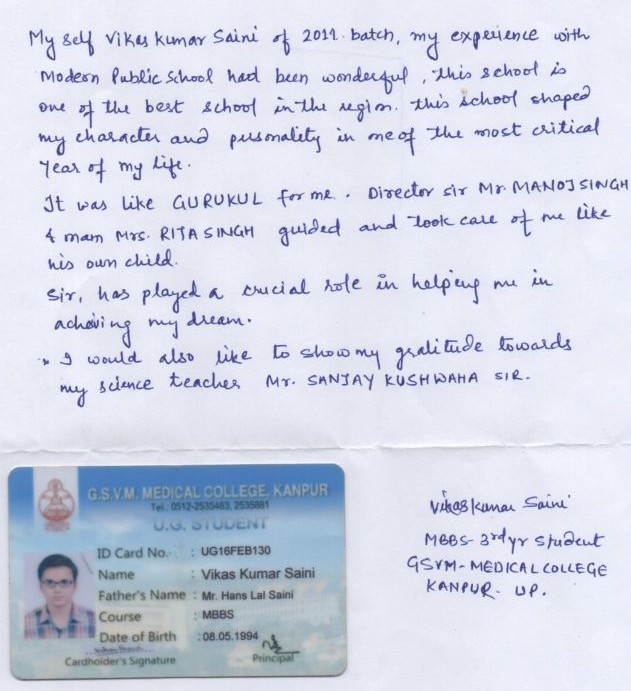 My self Vikas Kumar Saini of 2011 batch, my experience with
Modern Public School had been wonderful, this school is
one of the best school in the region. this school shaped
my character and personality in one of the most critical
year of my life.
It was like GURUKUL for me. Director sir Mr. MANOJ SINGH
& mam Mrs. RITA SINGH guided and took care of me like
his own child.
Sir, has played a crucial role in helping me in
acheiving my dream.
* I would also like to show my gratitude towards
my science teacher Mr. SANJAY KUSHWAHA SIR.
Vikas Kumar Saini
MBBS- 3rd yr student
GSVM- MEDICAL COLLEGE
KANPUR. UP.
G.S.V.M. MEDICAL COLLEGE, KANPUR
Tel. 0512-2535483, 2535881
U.G. STUDENT
ID Card No. : UG16FEB130
Name : Vikas Kumar Saini
Father's Name : Mr. Hans Lal Saini
Course : MBBS
Date of Birth : 08.05.1994
Cardholder's Signature
Principal